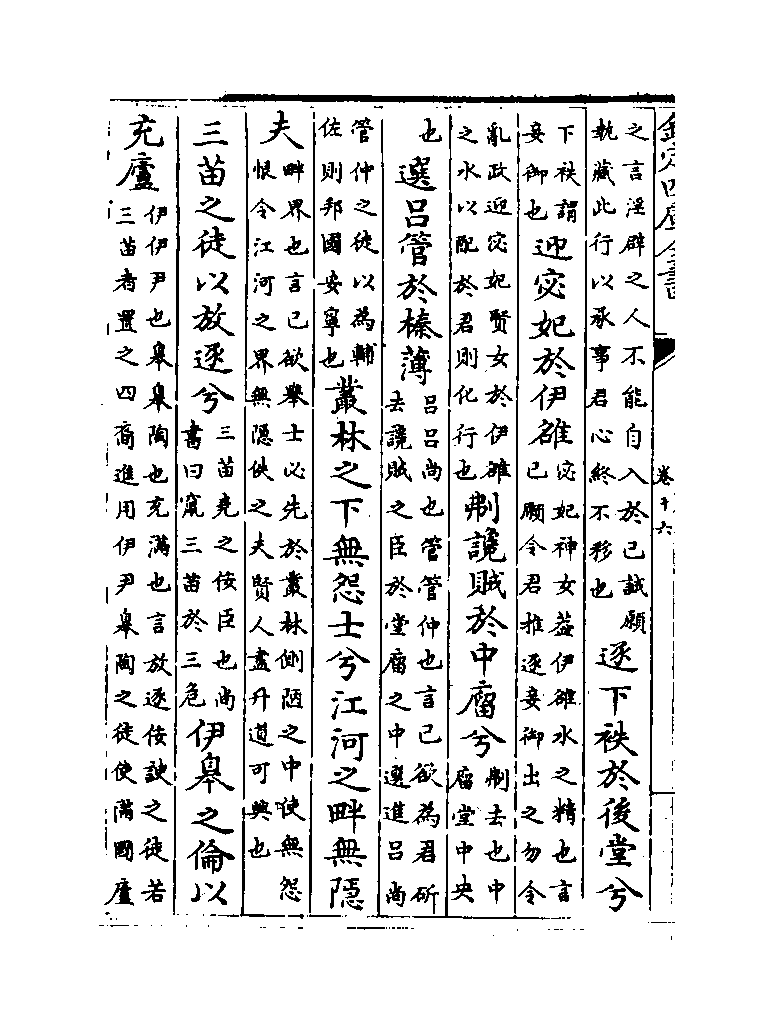 欽定四庫全書 卷十六
之言淫辟之人不能自入於己誠願
執藏此行以承事君心終不移也
逐下袟於後堂兮
下袟謂
妾御也
迎宓妃於伊雒
宓妃神女葢伊雒水之精也言
己願令君推逐妾御出之勿令
亂政迎宓妃賢女於伊雒
之水以配於君則化行也
刜讒賊於中廇兮
刜去也中
廇堂中央
也
選呂管於榛薄
呂呂尚也管管仲也言己欲為君斫
去讒賊之臣於堂廇之中選進呂尚
管仲之徒以為輔
佐則邦國安寧也
叢林之下無怨士兮江河之畔無隱
夫
畔界也言己欲舉士必先於叢林側陋之中使無怨
恨令江河之界無隱佚之夫賢人盡升道可興也
三苗之徒以放逐兮
三苗堯之佞臣也尚
書曰竄三苗於三危
伊皋之倫以
充廬
伊伊尹也皋皋陶也充滿也言放逐佞諛之徒若
三苗者置之四裔進用伊尹皋陶之徒使滿國廬